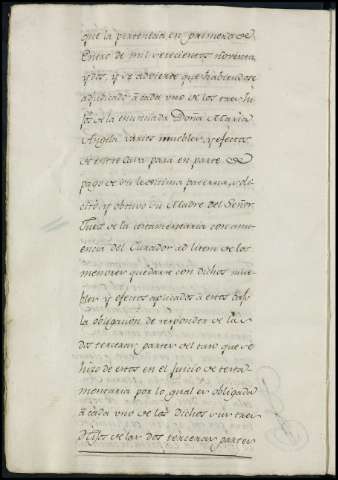 que la pertenecia en primero de
Enero de mil setecientos noventa
y dos, y se advierte que habiendose
adjudicado à cada uno de los tres hi-
jos de la enunciada Doña Maria
Angela varios muebles, y efectos
de entre Casa para en parte de
pago de su lexitima paterna, soli-
citò, y obtuvo su Madre del Señor
Juez de la testamentaria con anu-
encia del Curador ad litem de los
menores quedarse con dichos mue-
bles y efectos aplicados à estos bajo
la obligacion de responder de las
dos terceras partes del taso que se
hizo de estos en el juicio de testa-
mentaria por lo qual es obligada
à cada uno de los dichos sus tres
Hijos de las dos terceras partes